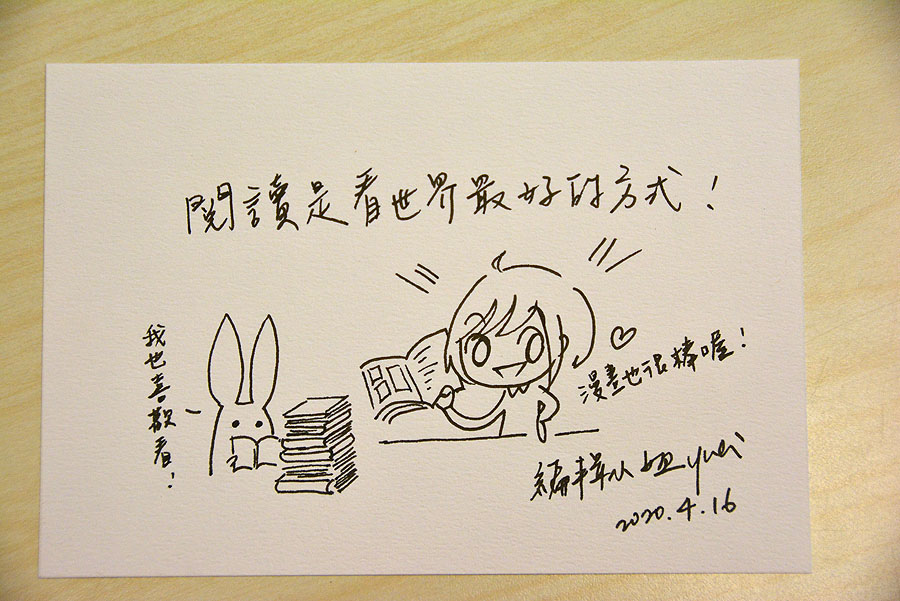 閱讀是看世界最好的方式！
我也喜歡看！
漫畫也很棒喔！
編輯小姐yuli
2020.4.16